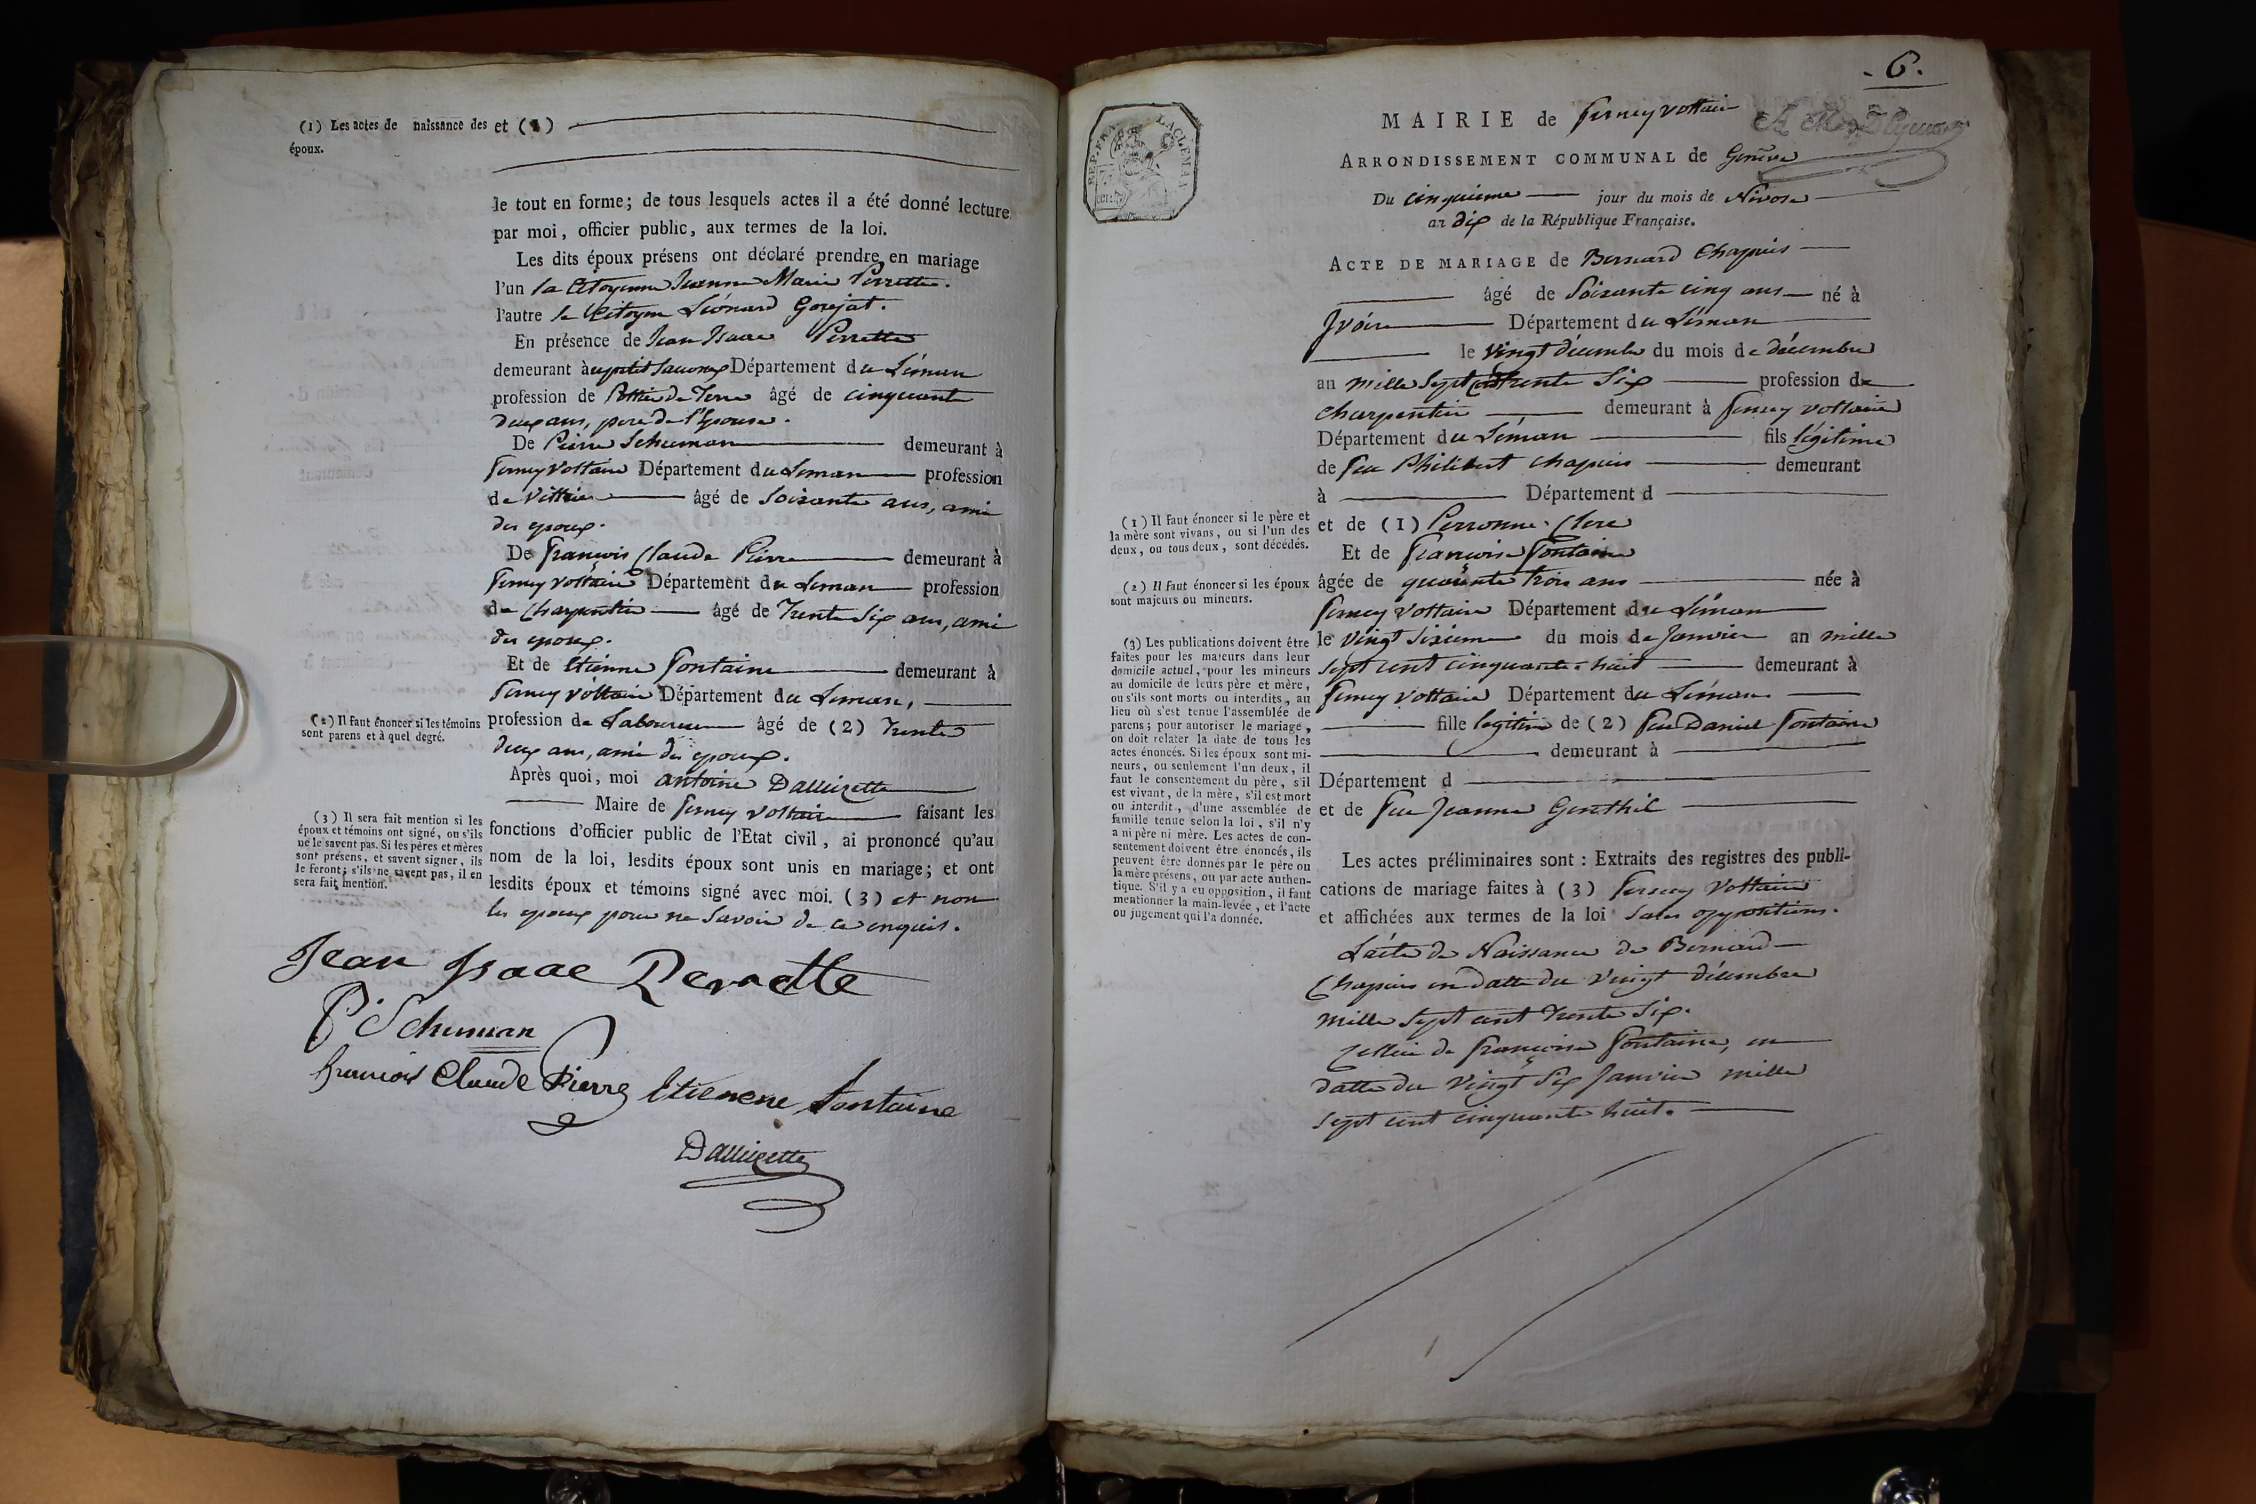 (1) Les actes de naissance des
époux.
et (1)
le tout en forme; de tous lesquels actes il a été donné lecture
par moi, officier public, aux termes de la loi.
Les dits époux présens ont déclaré prendre en mariage
l'un la Citoyenne Jeanne Marie Perrette.
l'autre le Citoyen Léonard Gorejat.
En présence de Jean Isaac Perrette
demeurant à au petit Saconex Département du Léman
profession de Pottier de Terre âgé de cinquante
deux ans, pere de l'Epouse.
De Pierre Schuman demeurant à
ferney voltaire Département du Leman profession
de Vittrier âgé de Soixante ans, ami
des epoux.
De françois Claude Pierre demeurant à
ferney voltaire Département du Leman profession
de Charpentier âgé de Trente Six ans, ami
des epoux.
Et de Etienne fontaine demeurant à
ferney voltaire Département du Leman,
(2) Il faut énoncer si les témoins
sont parens et à quel degré.
profession de Laboureur âgé de (2) Trente
deux ans, ami des epoux.
Après quoi, moi antoine Dallizette
Maire de ferney voltaire faisant les
fonctions d'officier public de l'Etat civil, ai prononcé qu'au
nom de la loi, lesdits époux sont unis en mariage; et ont
lesdits époux et témoins signé avec moi. (3) et non
les epoux pour ne Savoir de ce enquis.
(3) Il sera fait mention si les
époux et témoins ont signé, ou s'ils
ne le savent pas. Si les pères et mères
sont présens, et savent signer, ils
le feront; s'ils ne savent pas, il en
sera fait mention.
Jean Isaac Perrette
P. Schuman
francois Claude Pierre Etienne fontaine
Dallizette
6.
REP. FRA.
MAIRIE de ferney voltaire
ARRONDISSEMENT COMMUNAL de Genève
Du cinquieme jour du mois de Nivose
an dix de la République Française.
ACTE DE MARIAGE de Bernard Chapuis
âgé de Soixante cinq ans né à
Yvoire Département du Léman
le vingt décembre du mois de décembre
an mille Sept cent trente Six profession de
charpentier demeurant à ferney voltaire
Département du Léman fils légitime
de feu Philibert chapuis demeurant
à Département d
(1) Il faut énoncer si le père et
la mère sont vivans, ou si l'un des
deux, ou tous deux, sont décédés.
et de (1) Perronne Clerc
Et de françoise fontaine
(2) Il faut énoncer si les époux
sont majeurs ou mineurs.
âgée de quarante trois ans née à
ferney voltaire Département du Léman
le vingt Sixieme du mois de Janvier an mille
Sept cent cinquante huit demeurant à
ferney voltaire Département du Léman
fille legitime de (2) feu Daniel fontaine
demeurant à
Département d
et de feu Jeanne Genthil
(3) Les publications doivent être
faites pour les majeurs dans leur
domicile actuel, pour les mineurs
au domicile de leurs père et mère,
ou s'ils sont morts ou interdits, au
lieu où s'est tenue l'assemblée de
parens; pour autoriser le mariage,
on doit relater la date de tous les
actes énoncés. Si les époux sont mi-
neurs, ou seulement l'un deux, il
faut le consentement du père, s'il
est vivant, de la mère, s'il est mort
ou interdit, d'une assemblée de
famille tenue selon la loi, s'il n'y
a ni père ni mère. Les actes de con-
sentement doivent être énoncés, ils
peuvent être donnés par le père ou
la mère présens, ou par acte authen-
tique. S'il y a eu opposition, il faut
mentionner la main-levée, et l'acte
ou jugement qui l'a donnée.
Les actes préliminaires sont : Extraits des registres des publi-
cations de mariage faites à (3) ferney Voltaire
et affichées aux termes de la loi Sans oppositions.
L'acte de Naissance de Bernard
Chapuis en datte du vingt décembre
mille Sept cent trente Six.
Celui de françoise fontaine, en
datte du vingt Six Janvier mille
Sept cent cinquante huit.